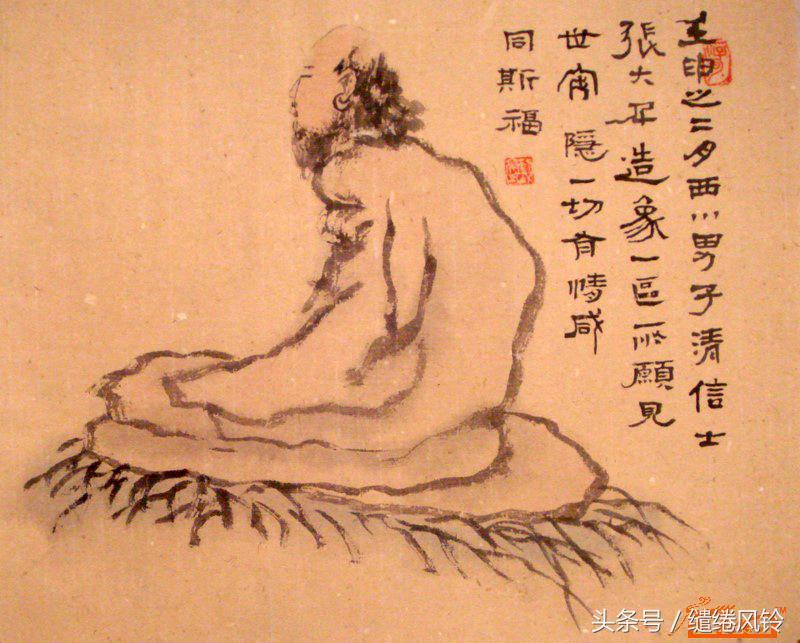 壬申之二月西川男子清信士
張大千造象一區所願見
世安隱一切有情咸
同斯福
头条号 / 缱绻风铃